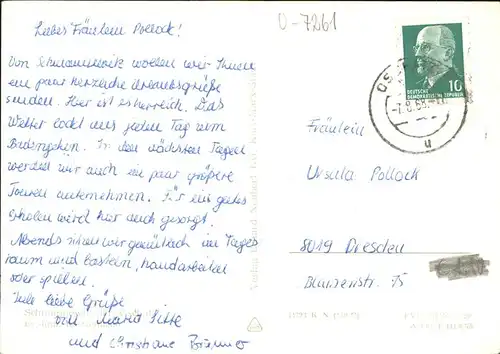 Liebes Fräulein Pollock!
O-7261
Von Schmannewitz wollen wir Ihnen
ein paar herzliche Urlaubsgrüße
senden. Hier ist es herrlich. Das
Wetter lockt uns jeden Tag zum
Badengehen. In den nächsten Tagen
werden wir auch ein paar größere
Touren unternehmen. Für ein gutes
Erholen wird hier auch gesorgt.
Abends sitzen wir gemütlich im Tages
raum und basteln, handarbeiten
oder spielen.
Viele liebe Grüße
von Maria
und Christiane
10
DEUTSCHE
DEMOKRATISCHE REPUBLIK
-7.8.68.-
u
Fräulein
Ursula Pollock
8019 Dresden
Blumenstr. 75